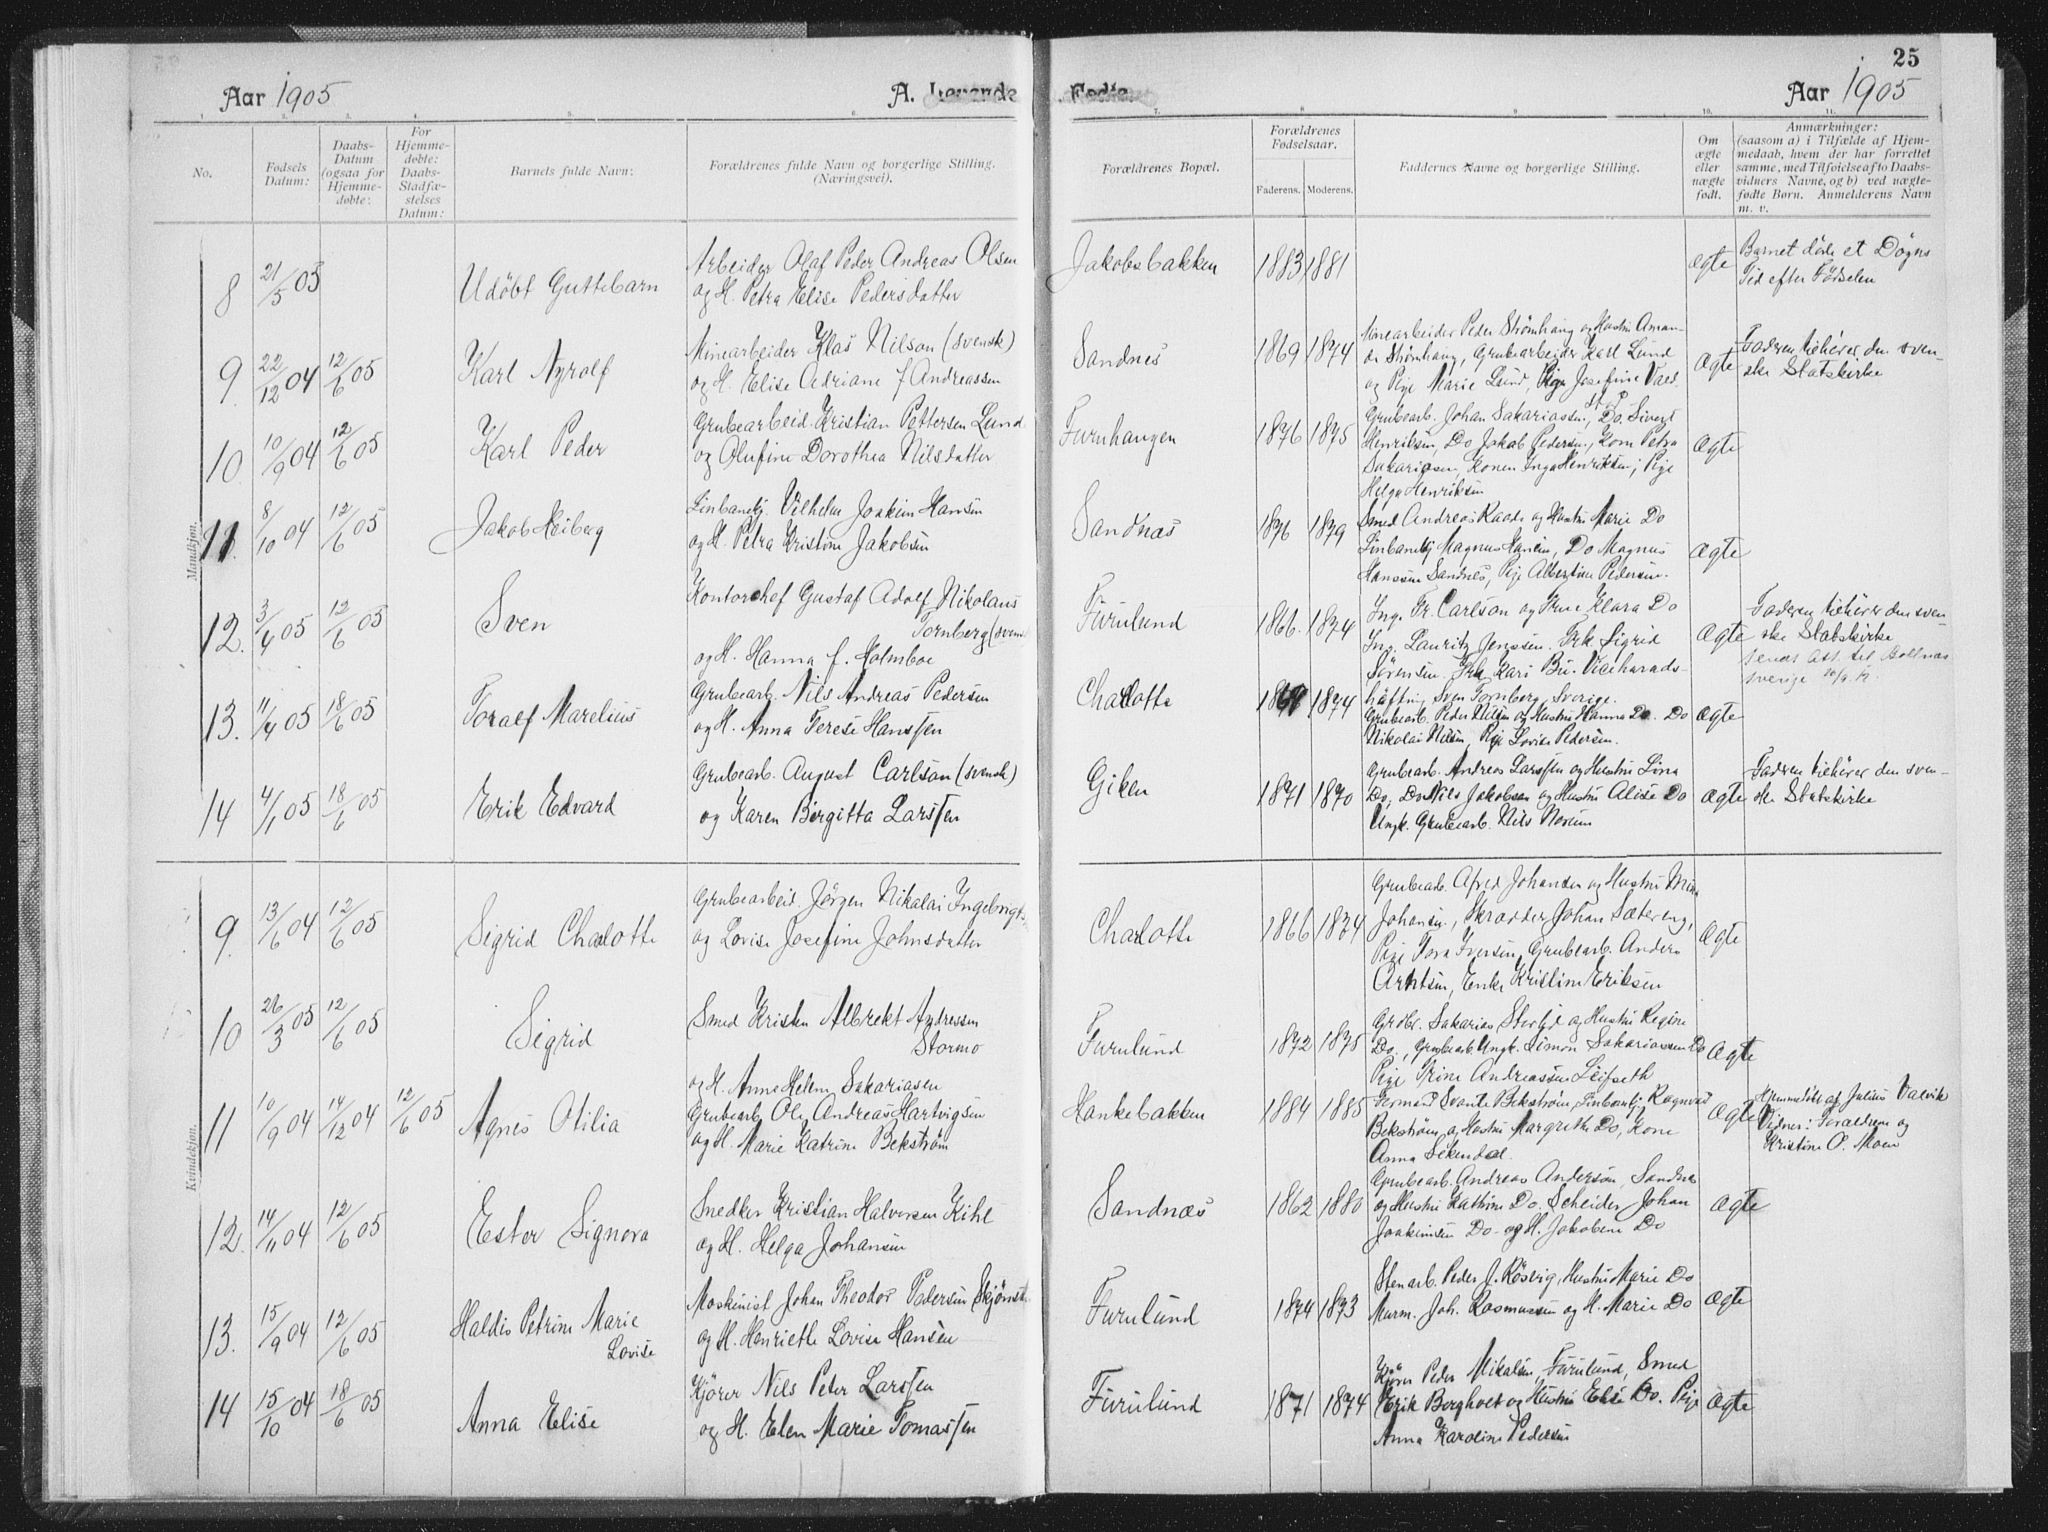 25
Aar 1905
A. Levende
Fødte.
Aar 1905
1. 2. 3. 4. 5. 6. 7. 8. 9. 10. 11.
No.
Fødsels Datum:
Daabs-Datum (ogsaa for Hjemmedøbte:
For Hjemmedøbte: Daabs-Stadfæstelses Datum:
Barnets fulde Navn:
Forældrenes fulde Navn og borgerlige Stilling. (Næringsvei).
Forældrenes Bopæl.
Forældrenes Fødselsaar.
Faderens. Moderens.
Faddernes Navne og borgerlige Stilling.
Om ægte eller nægte født.
Anmærkninger: (saasom a) i Tilfælde af Hjemmedaab, hvem der har forrettet samme, med Tilføielse af to Daabsvidners Navne, og b) ved nægtefødte Børn. Anmelderens Navn m. v.
Mandkjøn.
8 21/5 05 Udöbt Guttebarn
Arbeider Olaf Peder Andreas Olsen
og H. Petra Elise Pedersdatter
Jakobsbakken 1883 1881 ægte
Barnet döde et Døgns
Tid efter Födselen
9. 22/12 04 12/6 05 Karl Nyrolf
Minearbeider Klas Nilson (svensk)
og H. Elise Adriane f Andreassen
Sandnes 1869 1874
Minearbeider Peder Strømhaug og Hustru Aman-
da Strømhaug, Grubearbeider Karl Lund
og Pige Marie Lund, Pige Josefine
Ægte
Faderen tilhörer den sven-
ske Statskirke
10. 10/9 04 12/6 05 Karl Peder
Grubearbeid. Kristian Pettersen Lund
og Olufine Dorothea Nilsdatter
Furuhaugen 1876 1875
Grubearb. Johan Sakariassen, Do. Sivert
Henriksen, Do Jakob Pedersen, Kone Petra
Sakariasen, Konen Inga Henriksen, Pige
Helga Henriksen
Ægte
11. 8/10 04 12/6 05 Jakob Heiberg
Linbanebtj. Vilhelm Joakim Hansen
og H. Petra Kristine Jakobsen
Sandnæs 1876 1879
Smed Andreas Kaade og Hustru Marie Do
Linbanebtj Magnus Hansen, Do Magnus
Hanssen Sandnes, Pige Albertine Pedersen.
Ægte
12. 3/4 05 12/6 05 Sven
Kontorchef Gustaf Adolf Nikolaus
Tornberg (svensk)
og H. Hanna f. Holmboe
Furulund 1866. 1874
Ing. Fr. Carlson og Frue Klara Do
Ing. Lauritz Jenssen. Frk Sigrid
Sörensen. Frk Kari Bu. Viceharads-
häfting Sven Tornberg Sverige.
Ægte
Faderen tilhörer den sven-
ske Statskirke
13. 11/4 05 18/6 05 Toralf Marelius
Grubearb. Nils Andreas Pedersen
og H. Anna Terese Hanssen
Charlotta 1874
Grubearb. Peder Nilsen og Hustru Hanna Do. Do
Nikolai Nilsen, Pige Lovise Pedersen.
Ægte
14 4/1 05 18/6 05 Erik Edvard
Grubearb. August Carlson (svensk)
og Karen Birgitta Larssen
Giken 1871 1870
Grubearb. Andreas Larssen og Hustru Lina
Do, Do Nils Jakobsen og Hustru Alise Do
Ungk. Grubearb. Nils
ægte
Fadren tilhörer den sven-
ske Statskirke
Kvindekjøn.
9. 13/6 04 12/6 05 Sigrid Charlotte
Grubearbeid. Jörgen Nikolai Ingebrigts.
og Lovise Josefine Johnsdatter
Charlotte 1866 1874
Grubearb. Afred Johansen og Hustru Mina
Johansen, Skrædder Johan Sætereng,
Pige Tora Iversen, Grubearb. Anders
Arntsen, Enke Kristine Eriksen
Ægte
10 26/3 05 12/6 05 Sigrid
Smed Kristen Albrekt Andressen
Stormo
og H. Anne Helene Sakariasen
Furulund 1872 1875
Grdbr. Sakarias Storlid og Hustru Regine
Do., Grubearb. Ungk. Simon Sakariassen Do
Pige Trine Andreassen Leifseth
Ægte
11 10/9 04 14/12 04 12/6 05 Agnes Otilia
Grubearb Ole Andreas Hartvigsen
og H. Marie Katrine Bekström
Hankebakken 1884 1885
Formand Svante Bekström, Linbanbtj. Ragnvald
Bekström og Hustru Margrethe Do, Kone
Anna Sekendal.
Ægte
Hjemmedöbt af Julius Valvik
Vidner: Foraeldrene og
Kristine O. Moen
12. 14/11 04 12/6 05 Ester Signora
Snedker Kristian Halvorsen Kihl
og H. Helga Johansen
Sandnæs 1862 1880
Grubearb. Andreas Anderson, Sandnes
og Hustru Kathrine Do. Scheider Johan
Joakimsen Do og H. Jakobine Do
Ægte
13. 15/9 04 12/6 05 Haldis Petrine Marie
Lovise
Maskinist Johan Theodor Pedersen
og H. Henriette Lovise Hansen
Furulund 1874 1873
Stenarb. Peder J. Rösvig, Hustru Marie Do
Murm. Joh. Rasmussen og H. Marie Do
Ægte
14 15/10 04 18/6 05 Anna Elise
Kjörer Nils Peter Larssen
og H. Elen Marie Tomassen
Furulund 1871 1874
Kjörer Peder Mikalsen, Furulund, Smed
Erik Berghvet og Hustru Elise Do. Pige
Anna Karoline Pedersen
Ægte